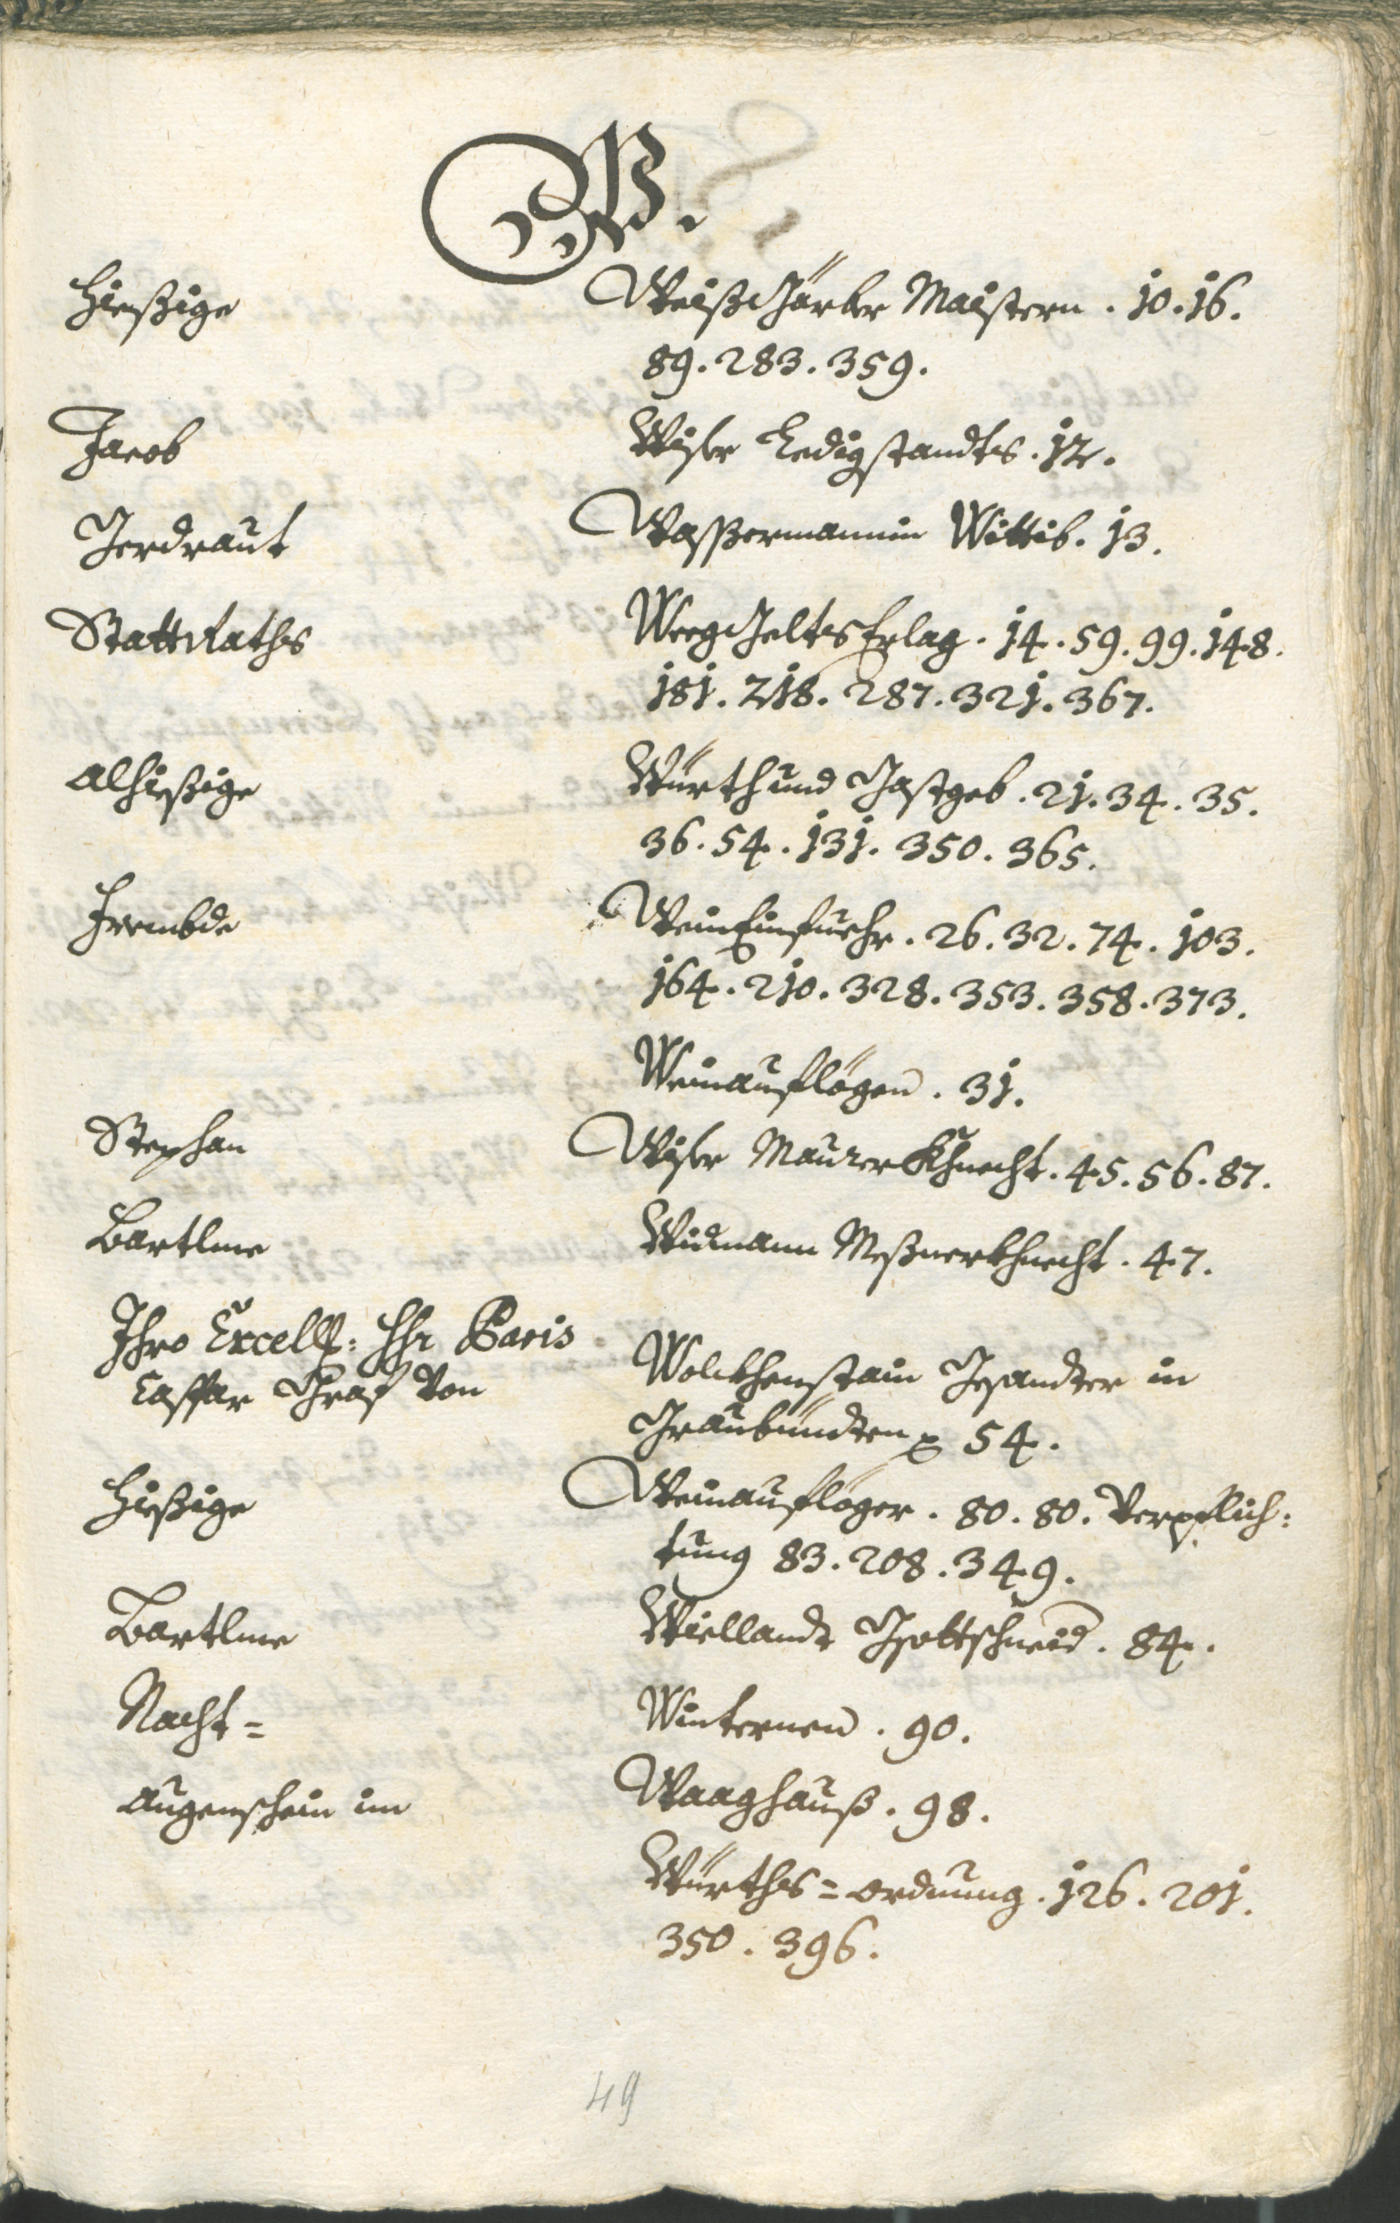 W.
Hießige Weißgärber Maistern . 10 . 16 .
89 . 283 . 359 .
Jacob Wiser Ledigstandts . 12 .
Gerdraut Wassermannin Wittib . 13 .
StattRaths WeegGelts Erlag . 14 . 59 . 99 . 148 .
181 . 218 . 287 . 321 . 367 .
Alhießige Würth und Gastgeb . 21 . 34 . 35 .
36 . 54 . 131 . 350 . 365 .
Frembde WeinEinfuehr . 26 . 32 . 74 . 103 .
164 . 210 . 328 . 353 . 358 . 373 .
Weinauflögen . 31 .
Stephan Wiser Maurer Khnecht . 45 . 56 . 87 .
Bartlme Widmann Meßnerkhnecht . 47 .
Ihro Excell: Hr Paris
Caspar Graf von Wolckhenstain Gesandter in
Graubündten 54 .
Hießige Weinaufleger . 80 . 80 . Verpflich:
tung 83 . 208 . 349 .
Bartlme Wiellandt . 84 .
Nacht = Winternen . 90 .
Augenschein im Waaghauß . 98 .
Würths = ordnung . 126 . 201 .
350 . 396 .
49